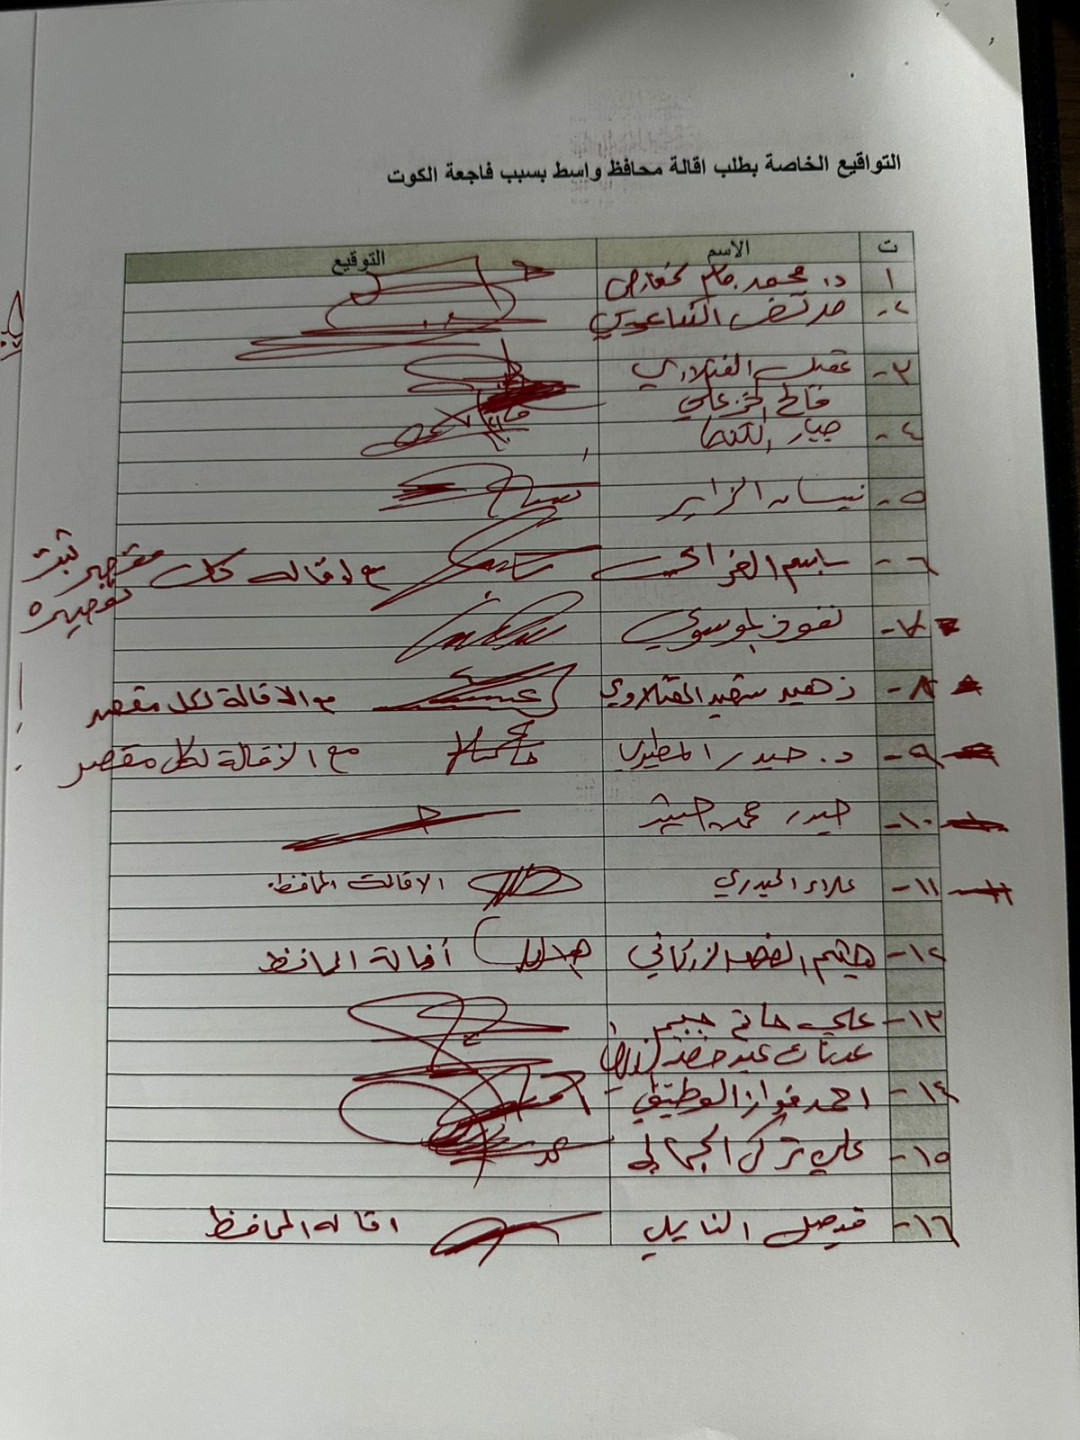 التواقيع الخاصة بطلب اقالة محافظ واسط بسبب فاجعة الكوت
ت الاسم التوقيع
١ د. محمد
٢- مرتضى الساعدي
٣- عقيل الفتلاوي
فالح الخزعلي
٤- جبار
٥- نيسان الزاير
٦- باسم الغرابي مع اقالة كل مقصر ثبت تقصيره
٧- نفوذ الموسوي
٨- زهير شهيد الفتلاوي مع الاقالة لكل مقصر
٩- د. حيدر المطيري مع الاقالة لكل مقصر
١٠- حيدر محمد حبيب
١١- علاء الحيدري الاقالة المحافظ
١٢- هيثم الزركاني أقالة المحافظ
١٣- علي حاتم
عدنان عبد خضر
١٤- احمد فواز الوطيفي
١٥- علي تركي الجمالي
١٦- فيصل النايلي اقاله المحافظ